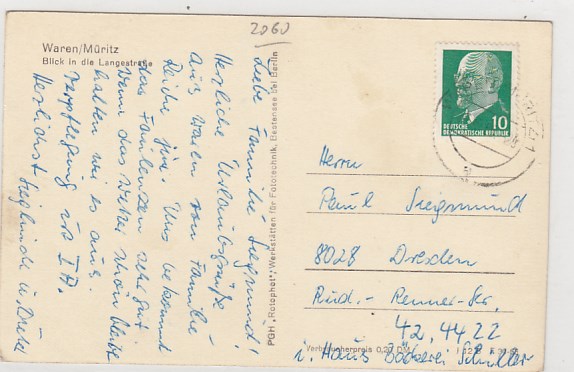 2060
Waren/Müritz
Blick in die Langestraße
Liebe Familie Siegmund!
Herzliche Urlaubsgrüße
aus Waren von Familie
Reiche. Uns bekommt
das Faulenzen sehr gut
Wenn das Wetter schön bleibt
halten wir es aus.
Verpflegung ist I A.
Herzlichst Sieglinde u.
PGH „Rotophot", Werkstätten für Fototechnik, Bestensee bei Berlin
10
DEUTSCHE
DEMOKRATISCHE REPUBLIK
Herrn
Paul Siegmund
8028 Dresden
Rud.-Renner-Str.
42, 4422
i. Haus Bäckerei Schiller
Verbraucherpreis 0,20 DM